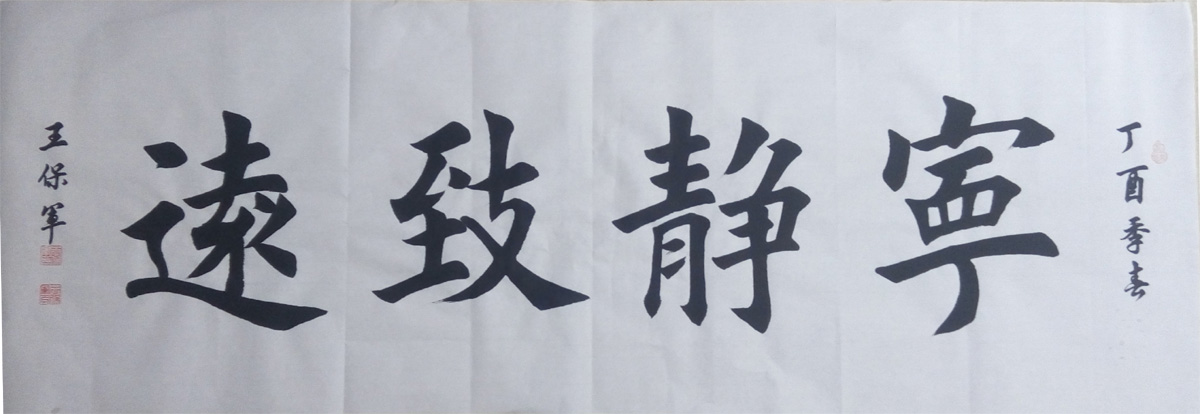 丁酉季春
寧静致遠
王保軍